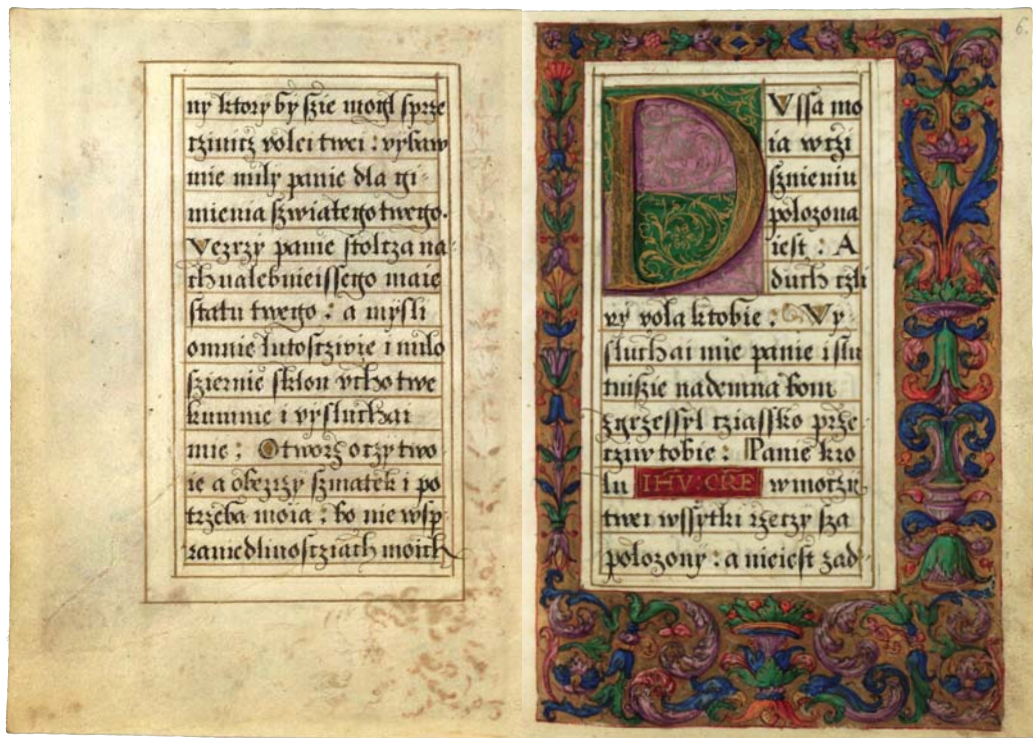 ny ktory by szie mogl sprze
cziuitz volei twei : vybaw
mie mily panie dla gi-
mienia szwiatego twego.
Vezrzy panie stolcza na
chualebnieissego maie
statu twego : a mysli
omnie lutosczivie i milo
sziernie sklon vcho twe
kumnie i vysluchai
mie : Otworz oczy two
ie a obezrzy szmatek i po
trzeba moia : bo nie wsp
raniedliuosciach moich
6.
Vssa mo
ia w czi
sznieniu
polozona
iest : A
duch czli
vy vola ktobie : Vy
sluchai mie panie i slu
tuiszie nademna bom
zgrzessyl cziassko prze
cziw tobie : Panie kro
lu IHV: CRE w moczy
twei wssytki rzeczy sza
polozony : a nieiest zad